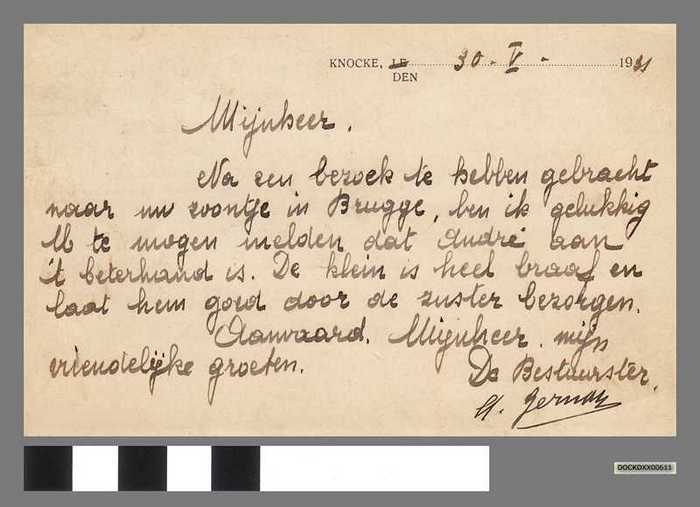 KNOCKE, LE 30 - V - 1931
DEN
Mijnheer.
Na een bezoek te hebben gebracht
naar uw zoontje in Brugge, ben ik gelukkig
U te mogen melden dat André aan
't beterhand is. De klein is heel braaf en
laat hem goed door de zuster bezorgen.
Aanvaard, Mijnheer, mijn
vriendelijke groeten.
De Bestuurster,
DOCKDXX00611